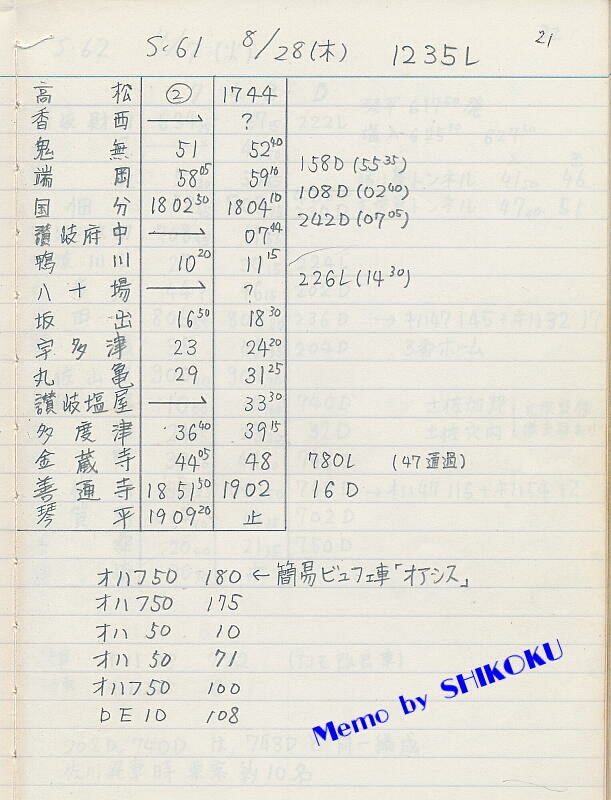 21
S.61 8/28(木) 1235L
高松 ② 1744
香西 → ?
鬼無 51 52 40
端岡 58 05 59 10 158D (55 35)
国分 1802 50 1804 10 108D (02 40)
讃岐府中 → 07 44 242D (07 05)
鴨川 10 20 11 15
八十場 → ? 226L (14 30)
坂出 16 50 18 30
宇多津 23 24 20
丸亀 29 31 25
讃岐塩屋 → 33 30
多度津 36 40 39 15
金蔵寺 44 05 48 780L (47通過)
善通寺 1851 50 1902 16D
琴平 1909 20 止
オハフ50 180 ← 簡易ビュフェ車「オアシス」
オハフ50 175
オハ 50 10
オハ 50 71
オハフ50 100
DE10 108
Memo by SHIKOKU